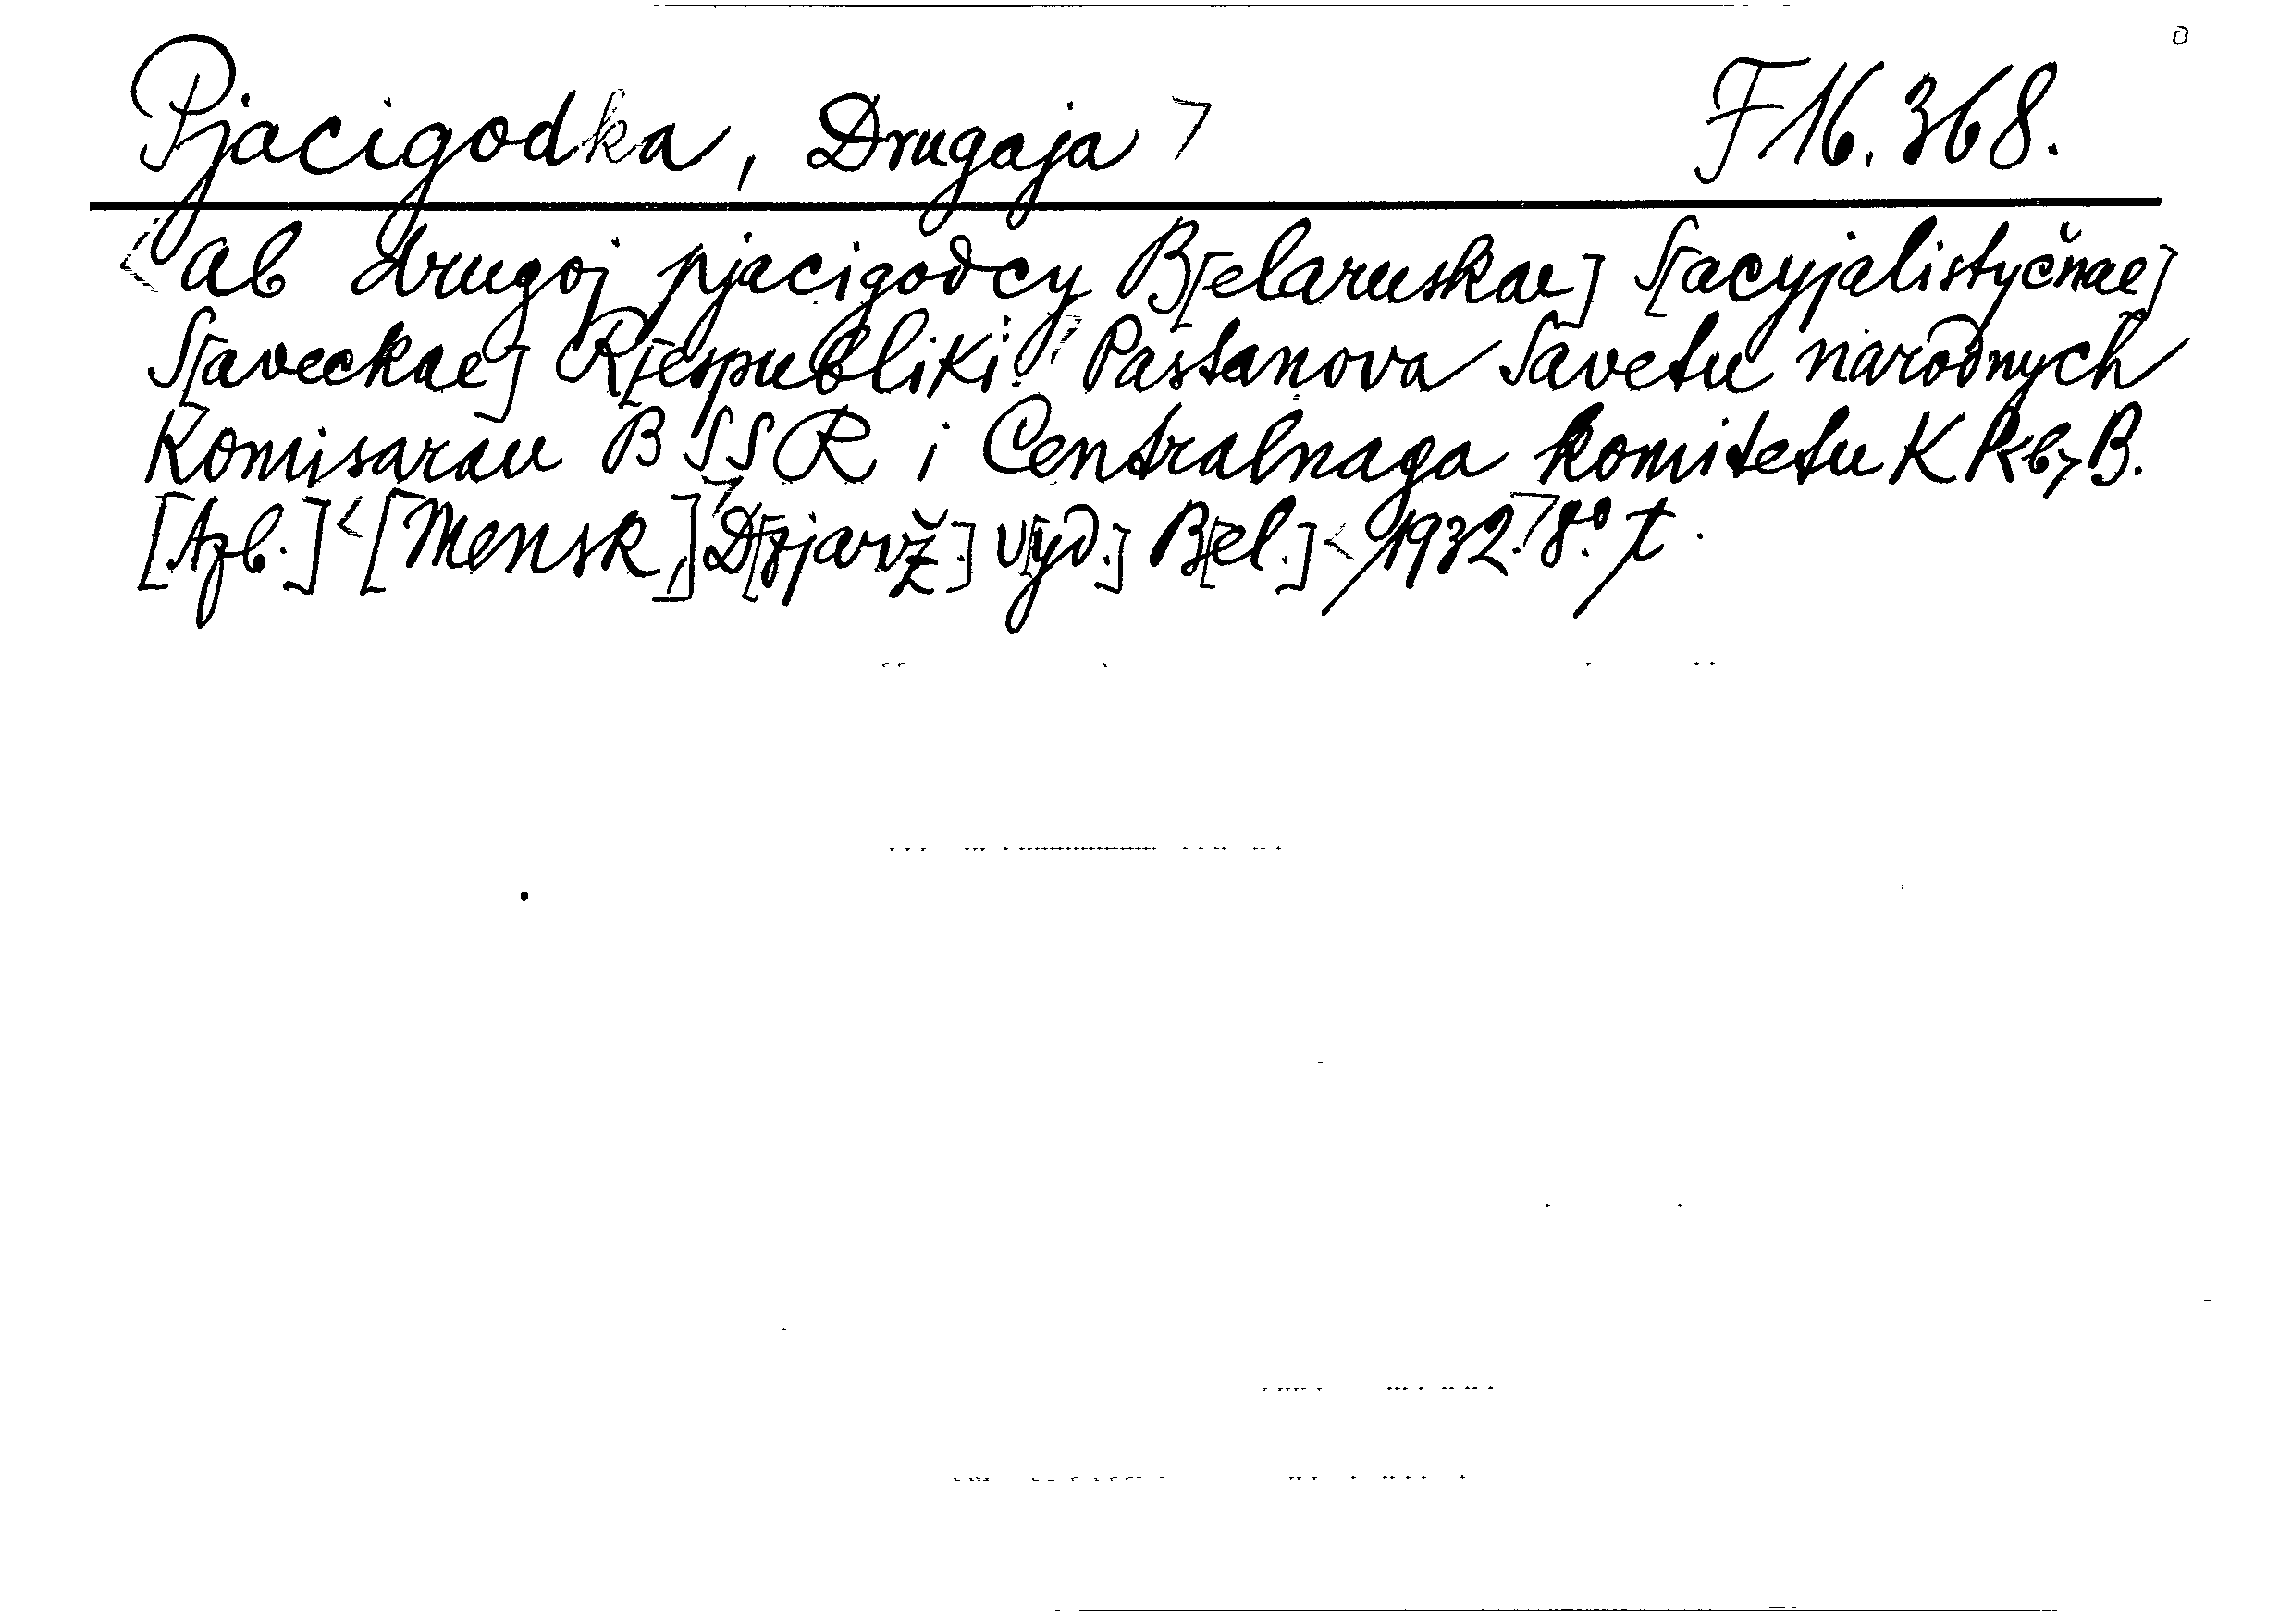 Pjacigodka, Drugaja > F 16.368.
<Ab drugoj pjacigodcy B[elaruskae] S[acyjalistyčnae]
S[aveckae] R[espubliki.> Pastanova Savetu narodnych
Komisarau BSSR i Centralnaga komitetu KP<b>B.
[Azb.] <[Mensk,]> D[zjarž.] v[yd.] B[el.] < 1932.> 8.° t.